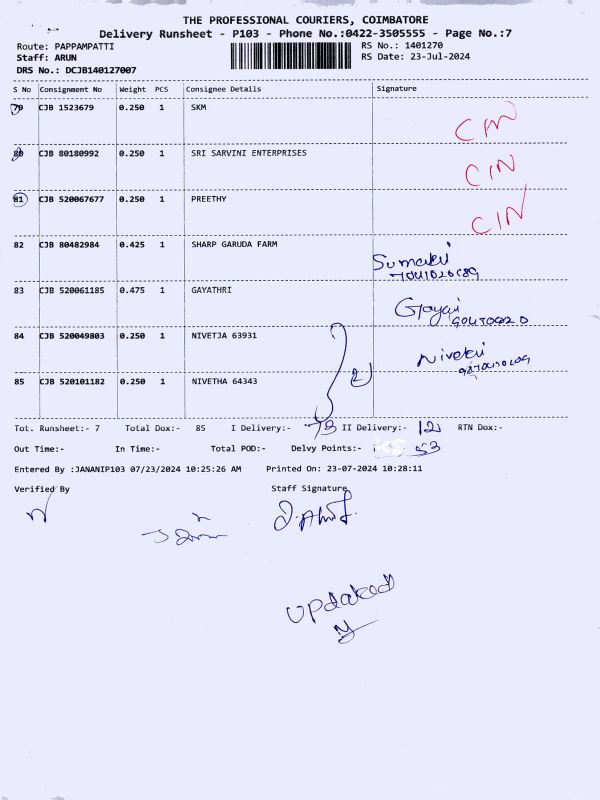 THE PROFESSIONAL COURIERS, COIMBATORE
Delivery Runsheet - P103 - Phone No.:0422-3505555 - Page No.:7
Route: PAPPAMPATTI RS No.: 1401270
Staff: ARUN RS Date: 23-Jul-2024
DRS No.: DCJB140127007
S No Consignment No Weight PCS Consignee Details Signature
79 CJB 1523679 0.250 1 SKM
CIN
80 CJB 80180992 0.250 1 SRI SARVINI ENTERPRISES
CIN
81 CJB 520067677 0.250 1 PREETHY
CIN
82 CJB 80482984 0.425 1 SHARP GARUDA FARM
Sumathi
83 CJB 520061185 0.475 1 GAYATHRI
84 CJB 520049803 0.250 1 NIVETJA 63931
2
85 CJB 520101182 0.250 1 NIVETHA 64343
Tot. Runsheet:- 7 Total Dox:- 85 I Delivery:- 73 II Delivery:- 12 RTN Dox:-
Out Time:- In Time:- Total POD:- Delvy Points:- 53
Entered By :JANANIP103 07/23/2024 10:25:26 AM Printed On: 23-07-2024 10:28:11
Verified By Staff Signature
Updated